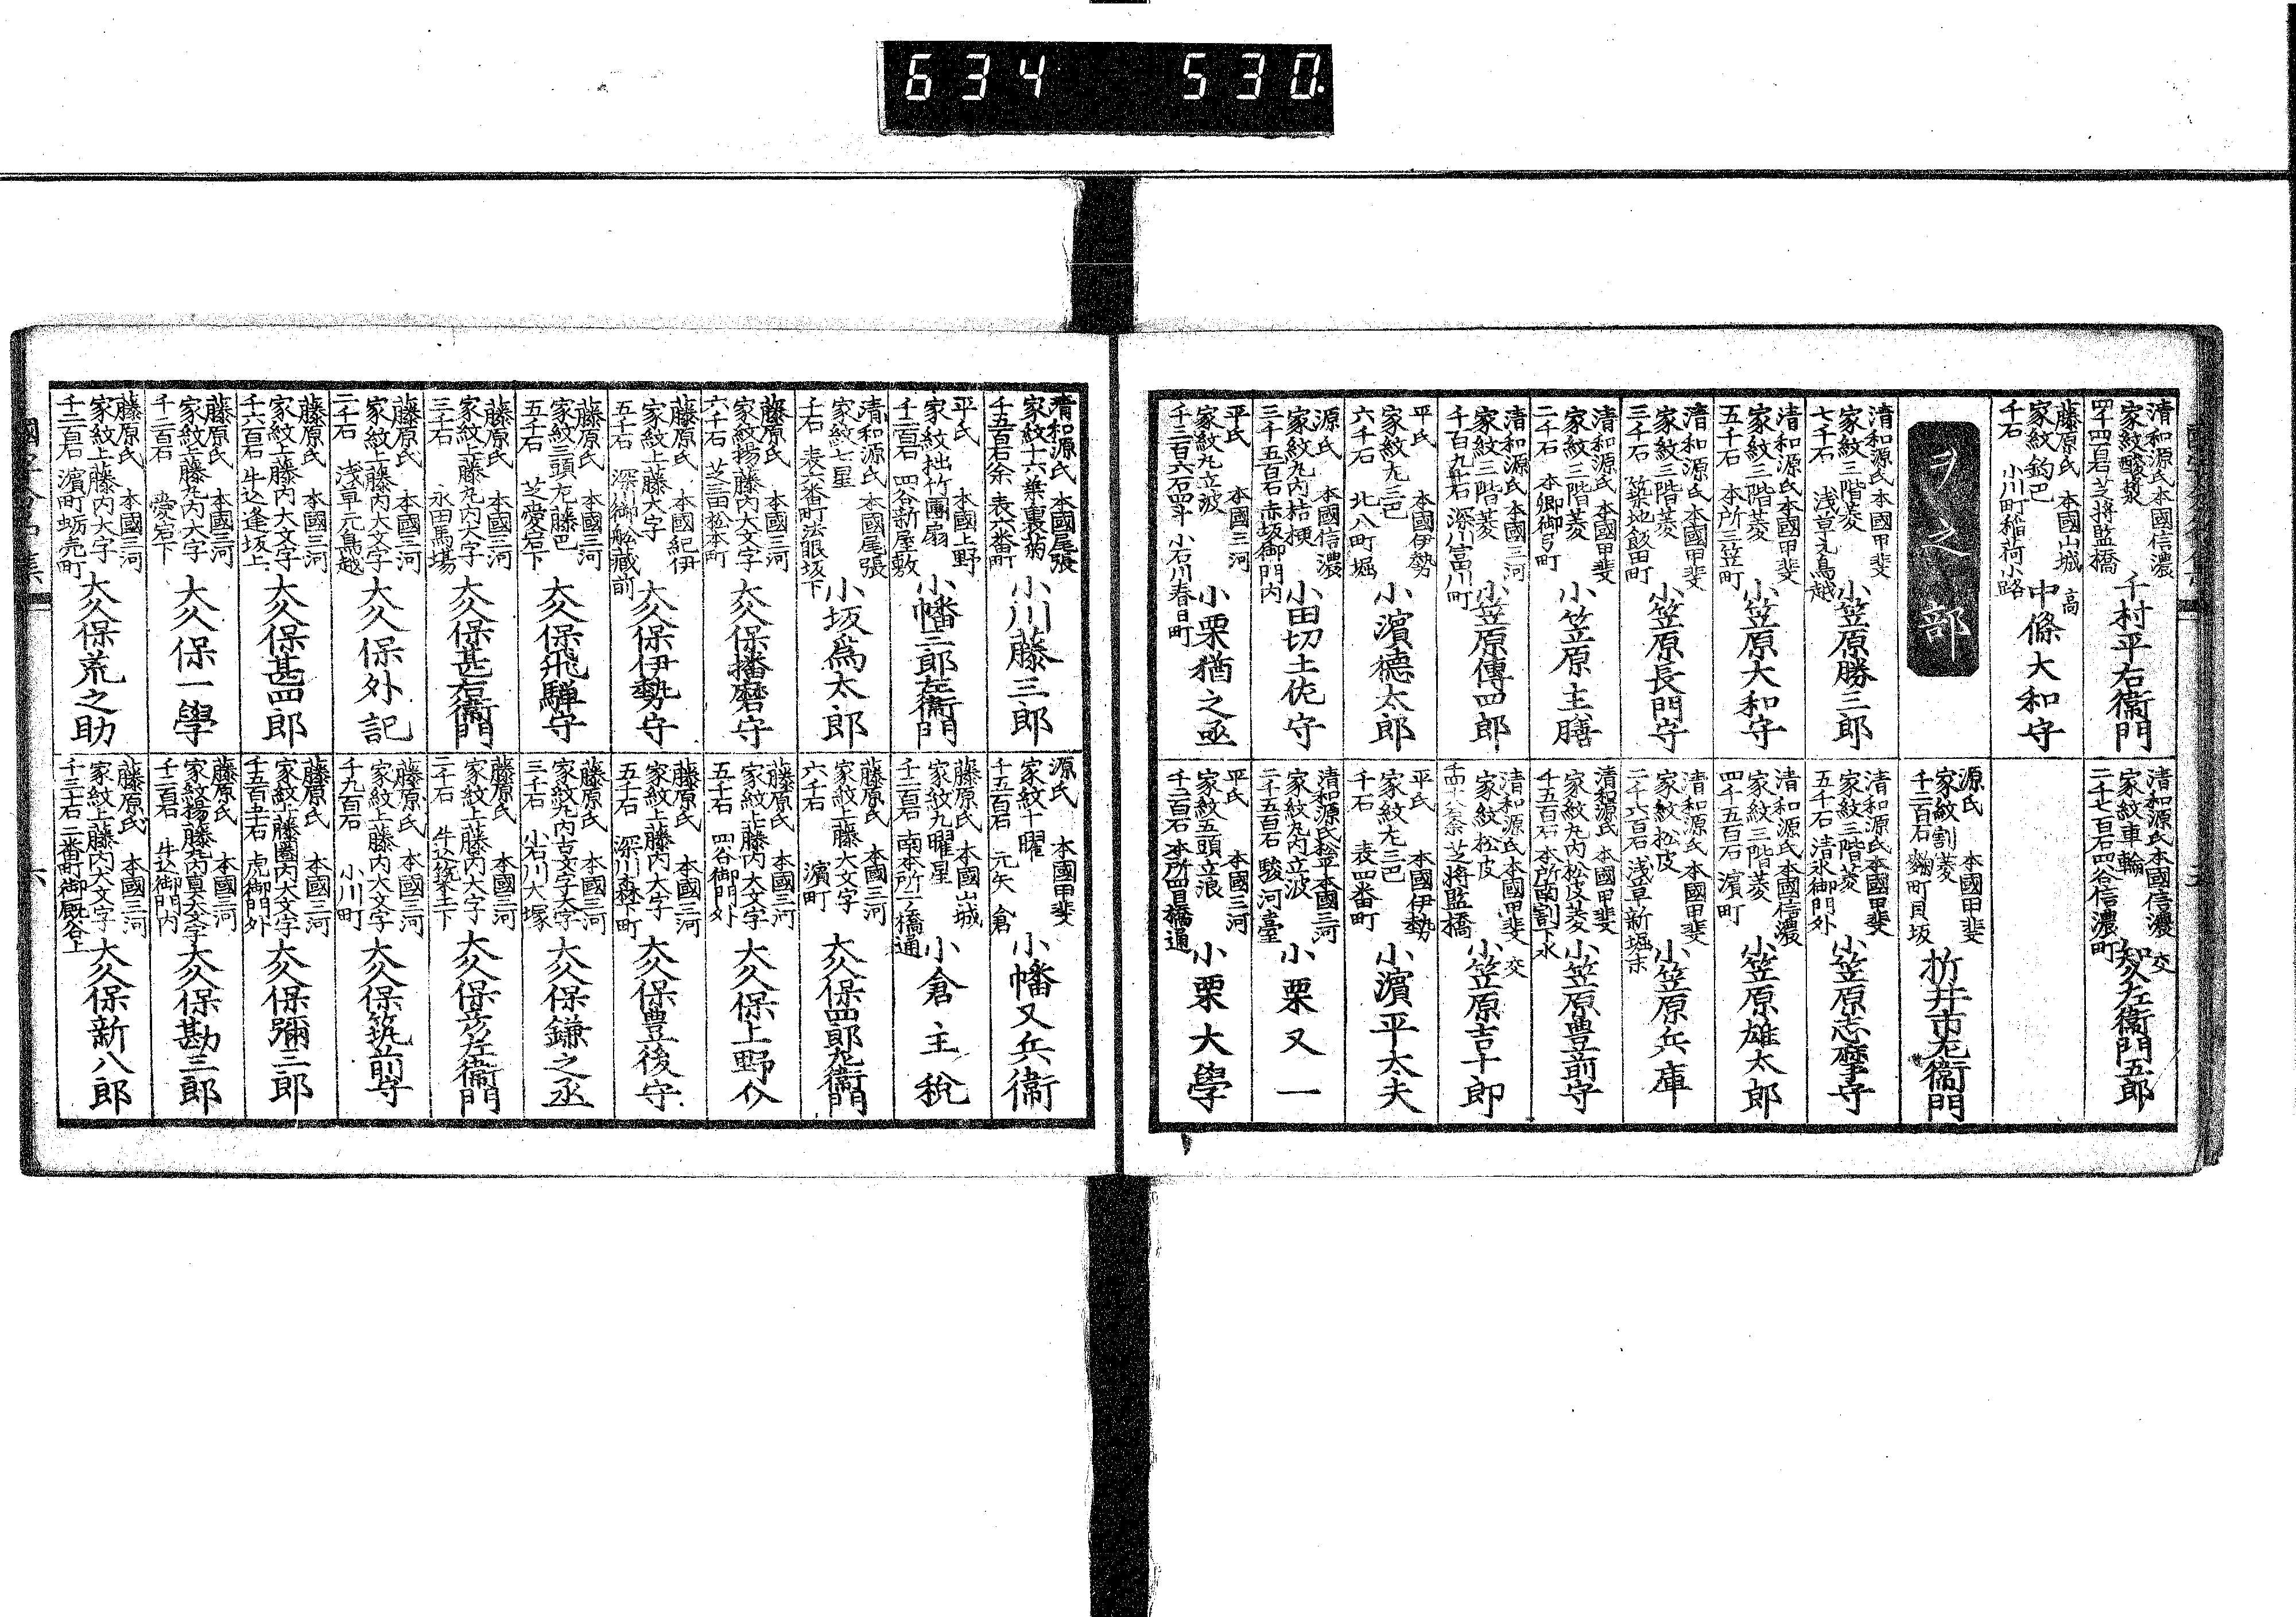 634 530
清和源氏 本國信濃
家紋酸漿
芝將監橋
千村平右衞門
藤原氏 本國山城
家紋鈎巴
千石 小川町稲荷小路
高
中條大和守
ヲ之部
清和源氏 本國甲斐
家紋三階菱
七千石 浅草元鳥越
小笠原勝三郎
清和源氏 本國甲斐
家紋三階菱
五千石 本所三笠町
小笠原大和守
清和源氏 本國甲斐
家紋三階菱
三千石 築地飯田町
小笠原長門守
清和源氏 本國甲斐
家紋三階菱
二千石 本郷御弓町
小笠原主膳
清和源氏 本國三河
家紋三階菱
深川富川町
小笠原傳四郎
平氏 本國伊勢
家紋左三巴
六千石 北八町堀
小濱德太郎
源氏 本國信濃
家紋丸内桔梗
三千五百石 赤坂御門内
小田切土佐守
平氏 本國三河
家紋丸立波
小石川春日町
小栗猶之丞
清和源氏 本國信濃
家紋車輪
二千七百石 四谷信濃町
交
知久左衞門五郎
源氏 本國甲斐
家紋割菱
千二百石 麹町貝坂
折井市左衞門
清和源氏 本國甲斐
家紋三階菱
五千石 清水御門外
小笠原志摩守
清和源氏 本國信濃
家紋三階菱
四千五百石 濱町
小笠原雄太郎
清和源氏 本國甲斐
家紋松皮
二千六百石 浅草新堀末
小笠原兵庫
清和源氏 本國甲斐
家紋丸内松皮菱
千五百石 本所南割下水
小笠原豊前守
清和源氏 本國甲斐
家紋松皮
芝將監橋
交
小笠原吉十郎
平氏 本國伊勢
家紋左三巴
千石 表四番町
小濱平太夫
清和源氏松平 本國三河
家紋丸内立波
二千五百石 駿河臺
小栗又一
平氏 本國三河
家紋五頭立浪
千二百石 本所四目橋通
小栗大學
清和源氏 本國尾張
家紋十六葉裏菊
千五百石余 表六番町
小川藤三郎
平氏 本國上野
家紋拙竹團扇
四谷新屋敷
小幡三郎左衞門
清和源氏 本國尾張
家紋七星
千石 表六番町法眼坂下
小坂爲太郎
藤原氏 本國三河
家紋揚藤内大文字
六千石 芝三田松本町
大久保播磨守
藤原氏 本國紀伊
家紋上藤大字
五千石 深川御舩藏前
大久保伊勢守
藤原氏 本國三河
家紋三頭左藤巴
五千石 芝愛宕下
大久保飛騨守
藤原氏 本國三河
家紋上藤丸内大字
三千石 永田馬場
大久保甚右衞門
藤原氏 本國三河
家紋上藤内大文字
二千石 浅草元鳥越
大久保外記
藤原氏 本國三河
家紋上藤内大文字
千六百石 牛込逢坂上
大久保甚四郎
藤原氏 本國三河
家紋上藤丸内大字
千二百石 愛宕下
大久保一學
藤原氏 本國三河
家紋上藤内大字
千二百石 濱町蛎壳町
大久保荒之助
源氏 本國甲斐
家紋十曜
千五百石 元矢倉
小幡又兵衞
藤原氏 本國山城
家紋九曜星
千二百石 南本所二ツ橋通
小倉主税
藤原氏 本國三河
家紋上藤大文字
六千石 濱町
大久保四郎左衞門
藤原氏 本國三河
家紋上藤内大文字
五千石 四谷御門外
大久保上野介
藤原氏 本國三河
家紋上藤内大字
五千石 深川森下町
大久保豊後守
藤原氏 本國三河
家紋丸内古文字大字
三千石 小石川大塚
大久保鎌之丞
藤原氏 本國三河
家紋上藤内大字
二千石 牛込築土下
大久保彦左衞門
藤原氏 本國三河
家紋上藤内大文字
千九百石 小川町
大久保筑前守
藤原氏 本國三河
家紋上藤圈内大文字
虎御門外
大久保彌三郎
藤原氏 本國三河
家紋揚藤
千二百石 牛込御門内
大久保勘三郎
藤原氏 本國三河
家紋上藤内大文字
千三十石 二番町御厩谷上
大久保新八郎
六